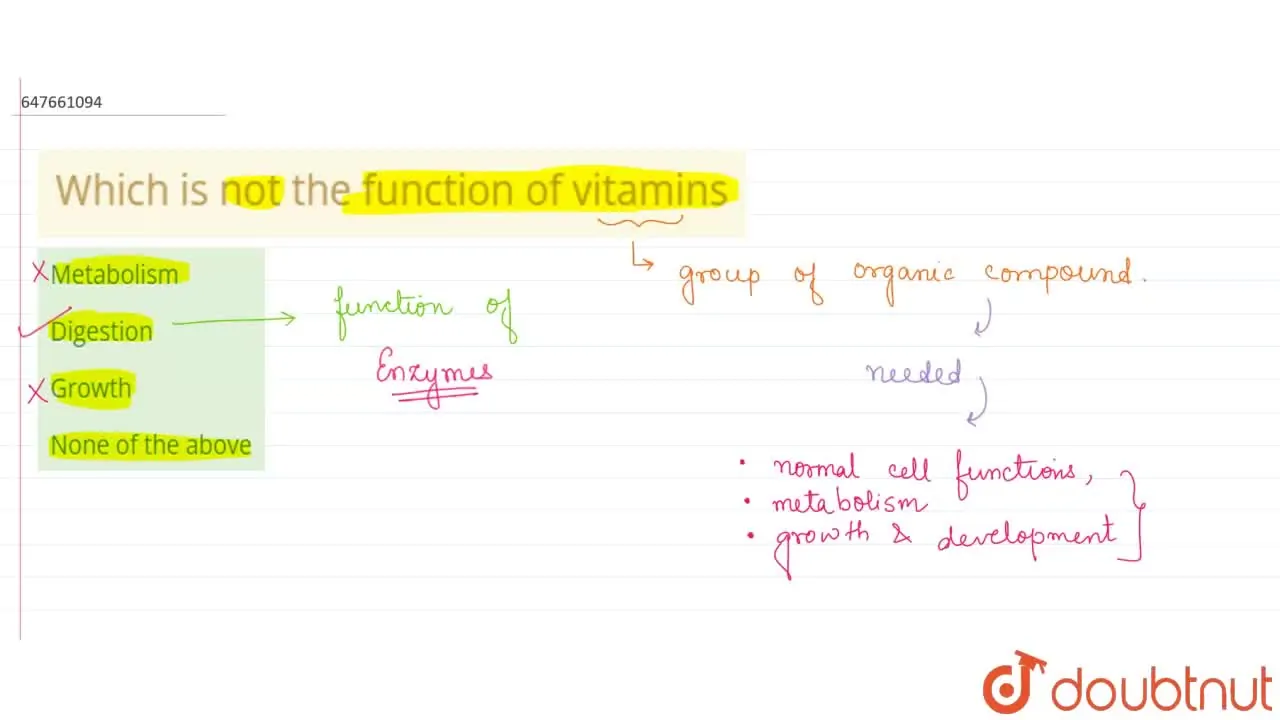 647661094
Which is not the function of vitamins
Metabolism
Digestion
Growth
None of the above
function of
Enzymes
group of organic compound.
needed
• normal cell functions,
• metabolism
• growth & development
doubtnut